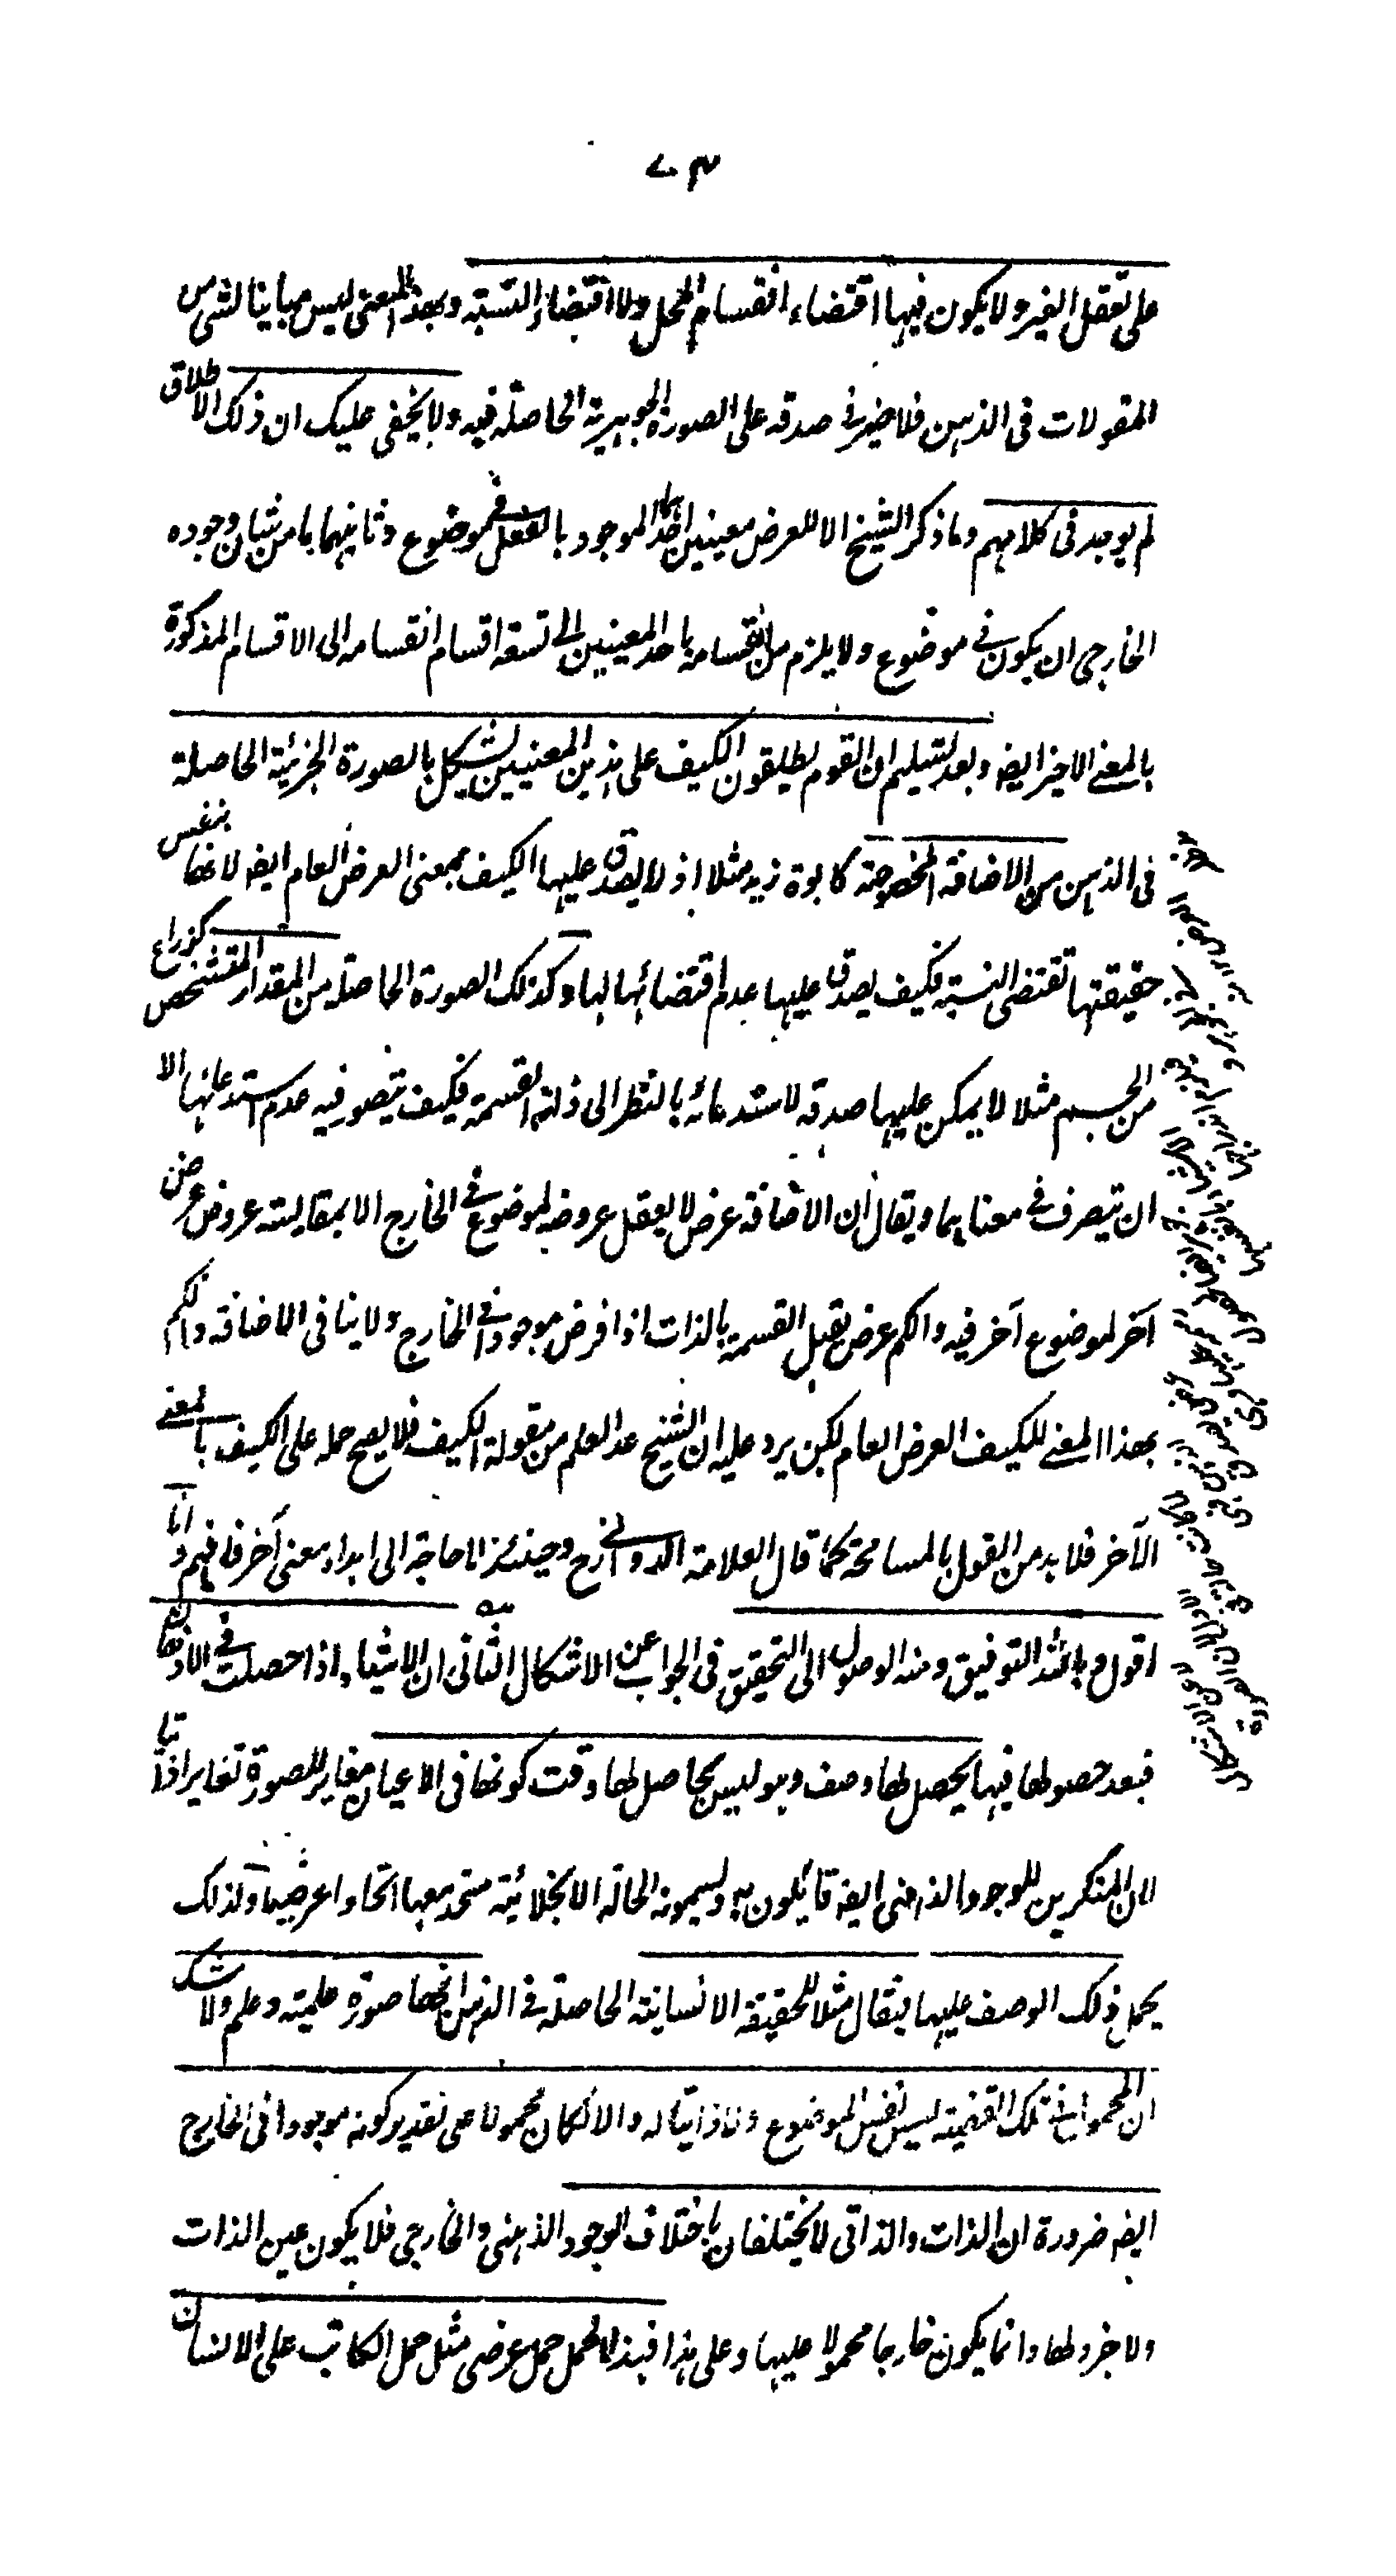 ٧٠٣
على تعقل الغير ولا يكون فيها اقتضاء انقسام المحل ولا اقتضاء النسبة وبهذا المعنى ليس مباينا لشئ من
المقولات فى الذهن فلا ضير فى صدقه على الصورة الجوهرية الحاصلة فيه ولا يخفى عليك ان ذلك الاطلاق
لم يوجد فى كلامهم وما ذكر الشيخ الا للعرض معنيين احدهما الموجود بالفعل فى موضوع وثانيهما ما من شان وجوده
الخارجى ان يكون فى موضوع ولا يلزم من انقسامه باحد المعنيين الى تسعة اقسام انقسامه الى الاقسام المذكورة
بالمعنى الاخير ايضا وبعد تسليم ان القوم يطلقون الكيف على هذين المعنيين يشكل بالصورة الجزئية الحاصلة
فى الذهن من الاضافة المخصوصة كابوة زيد مثلا اذ لا يصدق عليها الكيف بمعنى العرض العام ايضا لانها بنفس
حقيقتها تقتضى النسبة فكيف يصدق عليها عدم اقتضائها لها وكذلك الصورة الحاصلة من المقدار المتشخص كذراع
من الجسم مثلا لا يمكن عليها صدقه لاستدعائه بالنظر الى ذاته القسمة فكيف يتصور فيه عدم استدعائها الا
ان يتصرف فى معناهما ويقال ان الاضافة عرض لا يعقل عروضه لموضوع فى الخارج الا بمقايسة عروض عرض
آخر لموضوع آخر فيه والكم عرض يقبل القسمة بالذات اذا فرض موجودا فى الخارج ولا ينافى الاضافة والكم
بهذا المعنى للكيف العرض العام لكن يرد عليه ان الشيخ عد العلم من مقولة الكيف فلا يصح حمله على الكيف بالمعنى
الآخر فلا بد من القول بالمسامحة كما قال العلامة الدوانى رح وحينئذ لا حاجة الى ابداء معنى آخر فافهم وانا
اقول وبالله التوفيق ومنه الوصول الى التحقيق فى الجواب عن الاشكال الثانى ان الاشياء اذا حصلت فى الاذهان
فبعد حصولها فيها يحصل لها وصف وهو ليس بحاصل لها وقت كونها فى الاعيان مغاير للصورة تغايرا ذاتيا
لان المنكرين للوجود الذهنى ايضا قائلون به ويسمونه الحالة الانجلائية متحد معها اتحادا عرضيا ولذلك
يحمل ذلك الوصف عليها فيقال مثلا للحقيقة الانسانية الحاصلة فى الذهن انها صورة علمية وعلم ولا شك
ان المحمول فى تلك القضية ليس نفس الموضوع ولا ذاتيا له والا لكان محمولا على تقدير كونه موجودا فى الخارج
ايضا ضرورة ان الذات والذاتى لا يختلفان باختلاف الوجود الذهنى والخارجى فلا يكون عين الذات
ولا جزء لها وانما يكون خارجا محمولا عليها وعلى هذا فهذا الحمل حمل عرضى مثل حمل الكاتب على الانسان